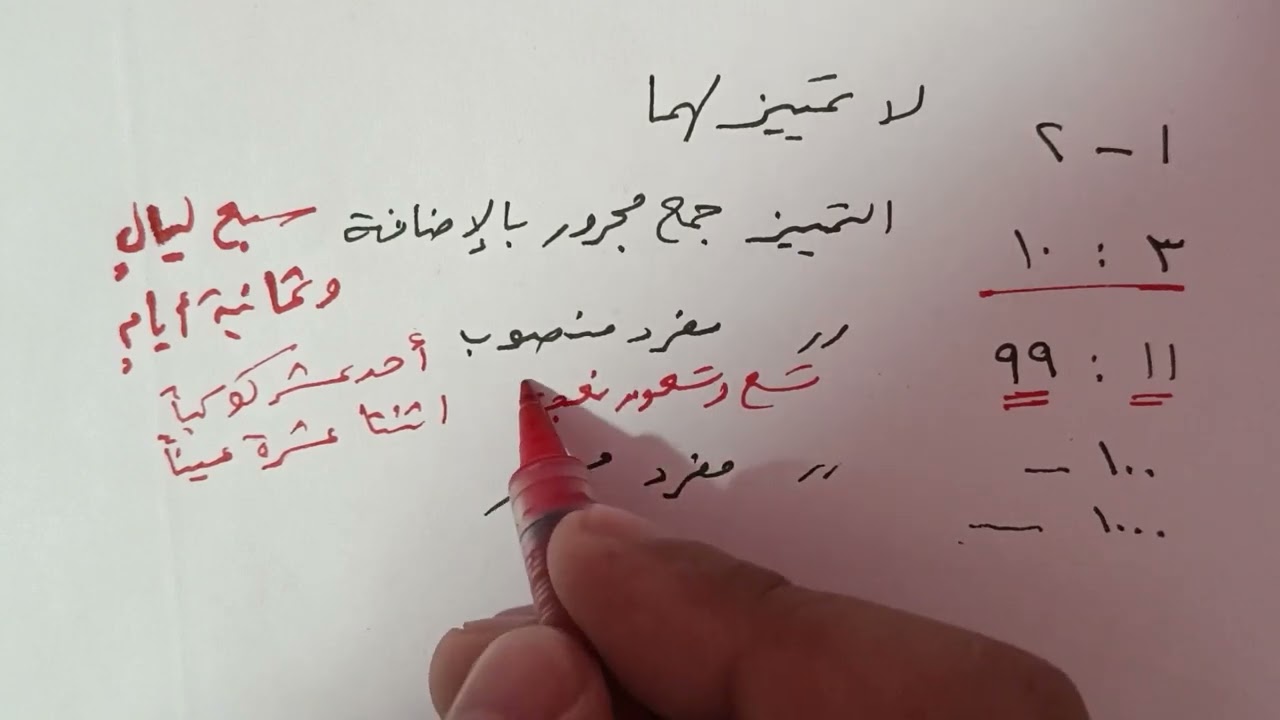 ١ - ٢ لا تمييز لهما
٣ : ١٠ التمييز جمع مجرور بالإضافة سبع ليالٍ
وثمانية أيامٍ
١١ : ٩٩ // مفرد منصوب أحد عشر كوكباً
تسع وتسعون نعجة اثنتا عشرة عيناً
١٠٠ - // مفرد
١٠٠٠ -